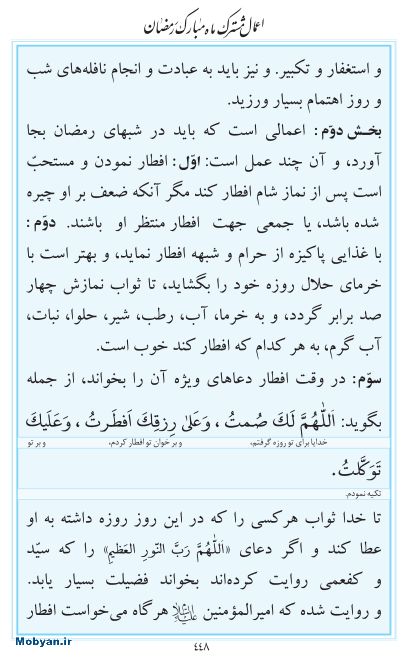 اعمال مشترک ماه مبارک رمضان
و استغفار و تکبیر. و نیز باید به عبادت و انجام نافله‌های شب
و روز اهتمام بسیار ورزید.
بخش دوّم: اعمالی است که باید در شبهای رمضان بجا
آورد، و آن چند عمل است: اوّل: افطار نمودن و مستحبّ
است پس از نماز شام افطار کند مگر آنکه ضعف بر او چیره
شده باشد، یا جمعی جهت افطار منتظر او باشند. دوّم:
با غذایی پاکیزه از حرام و شبهه افطار نماید، و بهتر است با
خرمای حلال روزه خود را بگشاید، تا ثواب نمازش چهار
صد برابر گردد، و به خرما، آب، رطب، شیر، حلوا، نبات،
آب گرم، به هر کدام که افطار کند خوب است.
سوّم: در وقت افطار دعاهای ویژه آن را بخواند، از جمله
بگوید: اَللّٰهُمَّ لَكَ صُمتُ ، وَعَلىٰ رِزقِكَ اَفطَرتُ ، وَعَلَيكَ
خدایا برای تو روزه گرفتم، و بر خوان تو افطار کردم، و بر تو
تَوَكَّلتُ.
تکیه نمودم.
تا خدا ثواب هرکسی را که در این روز روزه داشته به او
عطا کند و اگر دعای «اَللّٰهُمَّ رَبَّ النّورِ العَظیمِ» را که سیّد
و کفعمی روایت کرده‌اند بخواند فضیلت بسیار یابد.
و روایت شده که امیرالمؤمنین علیه‌السلام هرگاه می‌خواست افطار
Mobyan.ir
۴۴۸